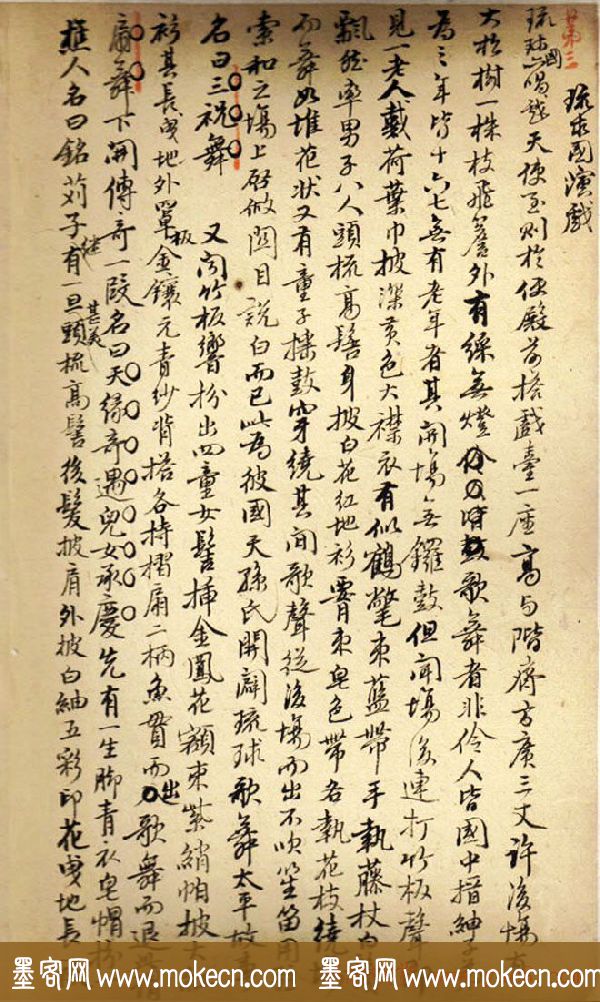 第三
琉球國演戲
琉球國喝越天使至則於使殿前搭戲臺一座高与階齊方廣三丈許後場有
大松樹一株枝飛簷外有綵無燈 歌舞者非伶人皆國中搢紳子
為之年皆十六七無有老年者其開場無鑼鼓但聞場後連打竹板聲
見一老人戴荷葉巾披深黃色大襟衣有似鶴氅束藍帶手執藤杖白
飄然率男子八人頭梳高髻身披白花紅地衫霄束皂色帶各執花枝繞
而舞如堆花狀又有童子揉鼓穿繞其間歌聲從後場而出不吹笙笛用
索和之場上所做關目說白而已此為彼國天孫氏開闢琉球歌舞太平故事
名曰三祝舞 又聞竹板響扮出四童女髻插金鳳花額束紫綃帕披大
衫其長曳地外罩板金鑲元青紗背搭各持摺扇二柄魚貫而出歌舞而退
扇舞下開傳奇一段名曰天緣奇遇兒女承慶先有一生脚青衣皂帽扮
樵人名曰銘苅子有一旦頭梳高髻後髮披肩外披白紬五彩印花曳地長
甚美
墨客网 www.mokecn.com 墨客网 www.mokecn.com